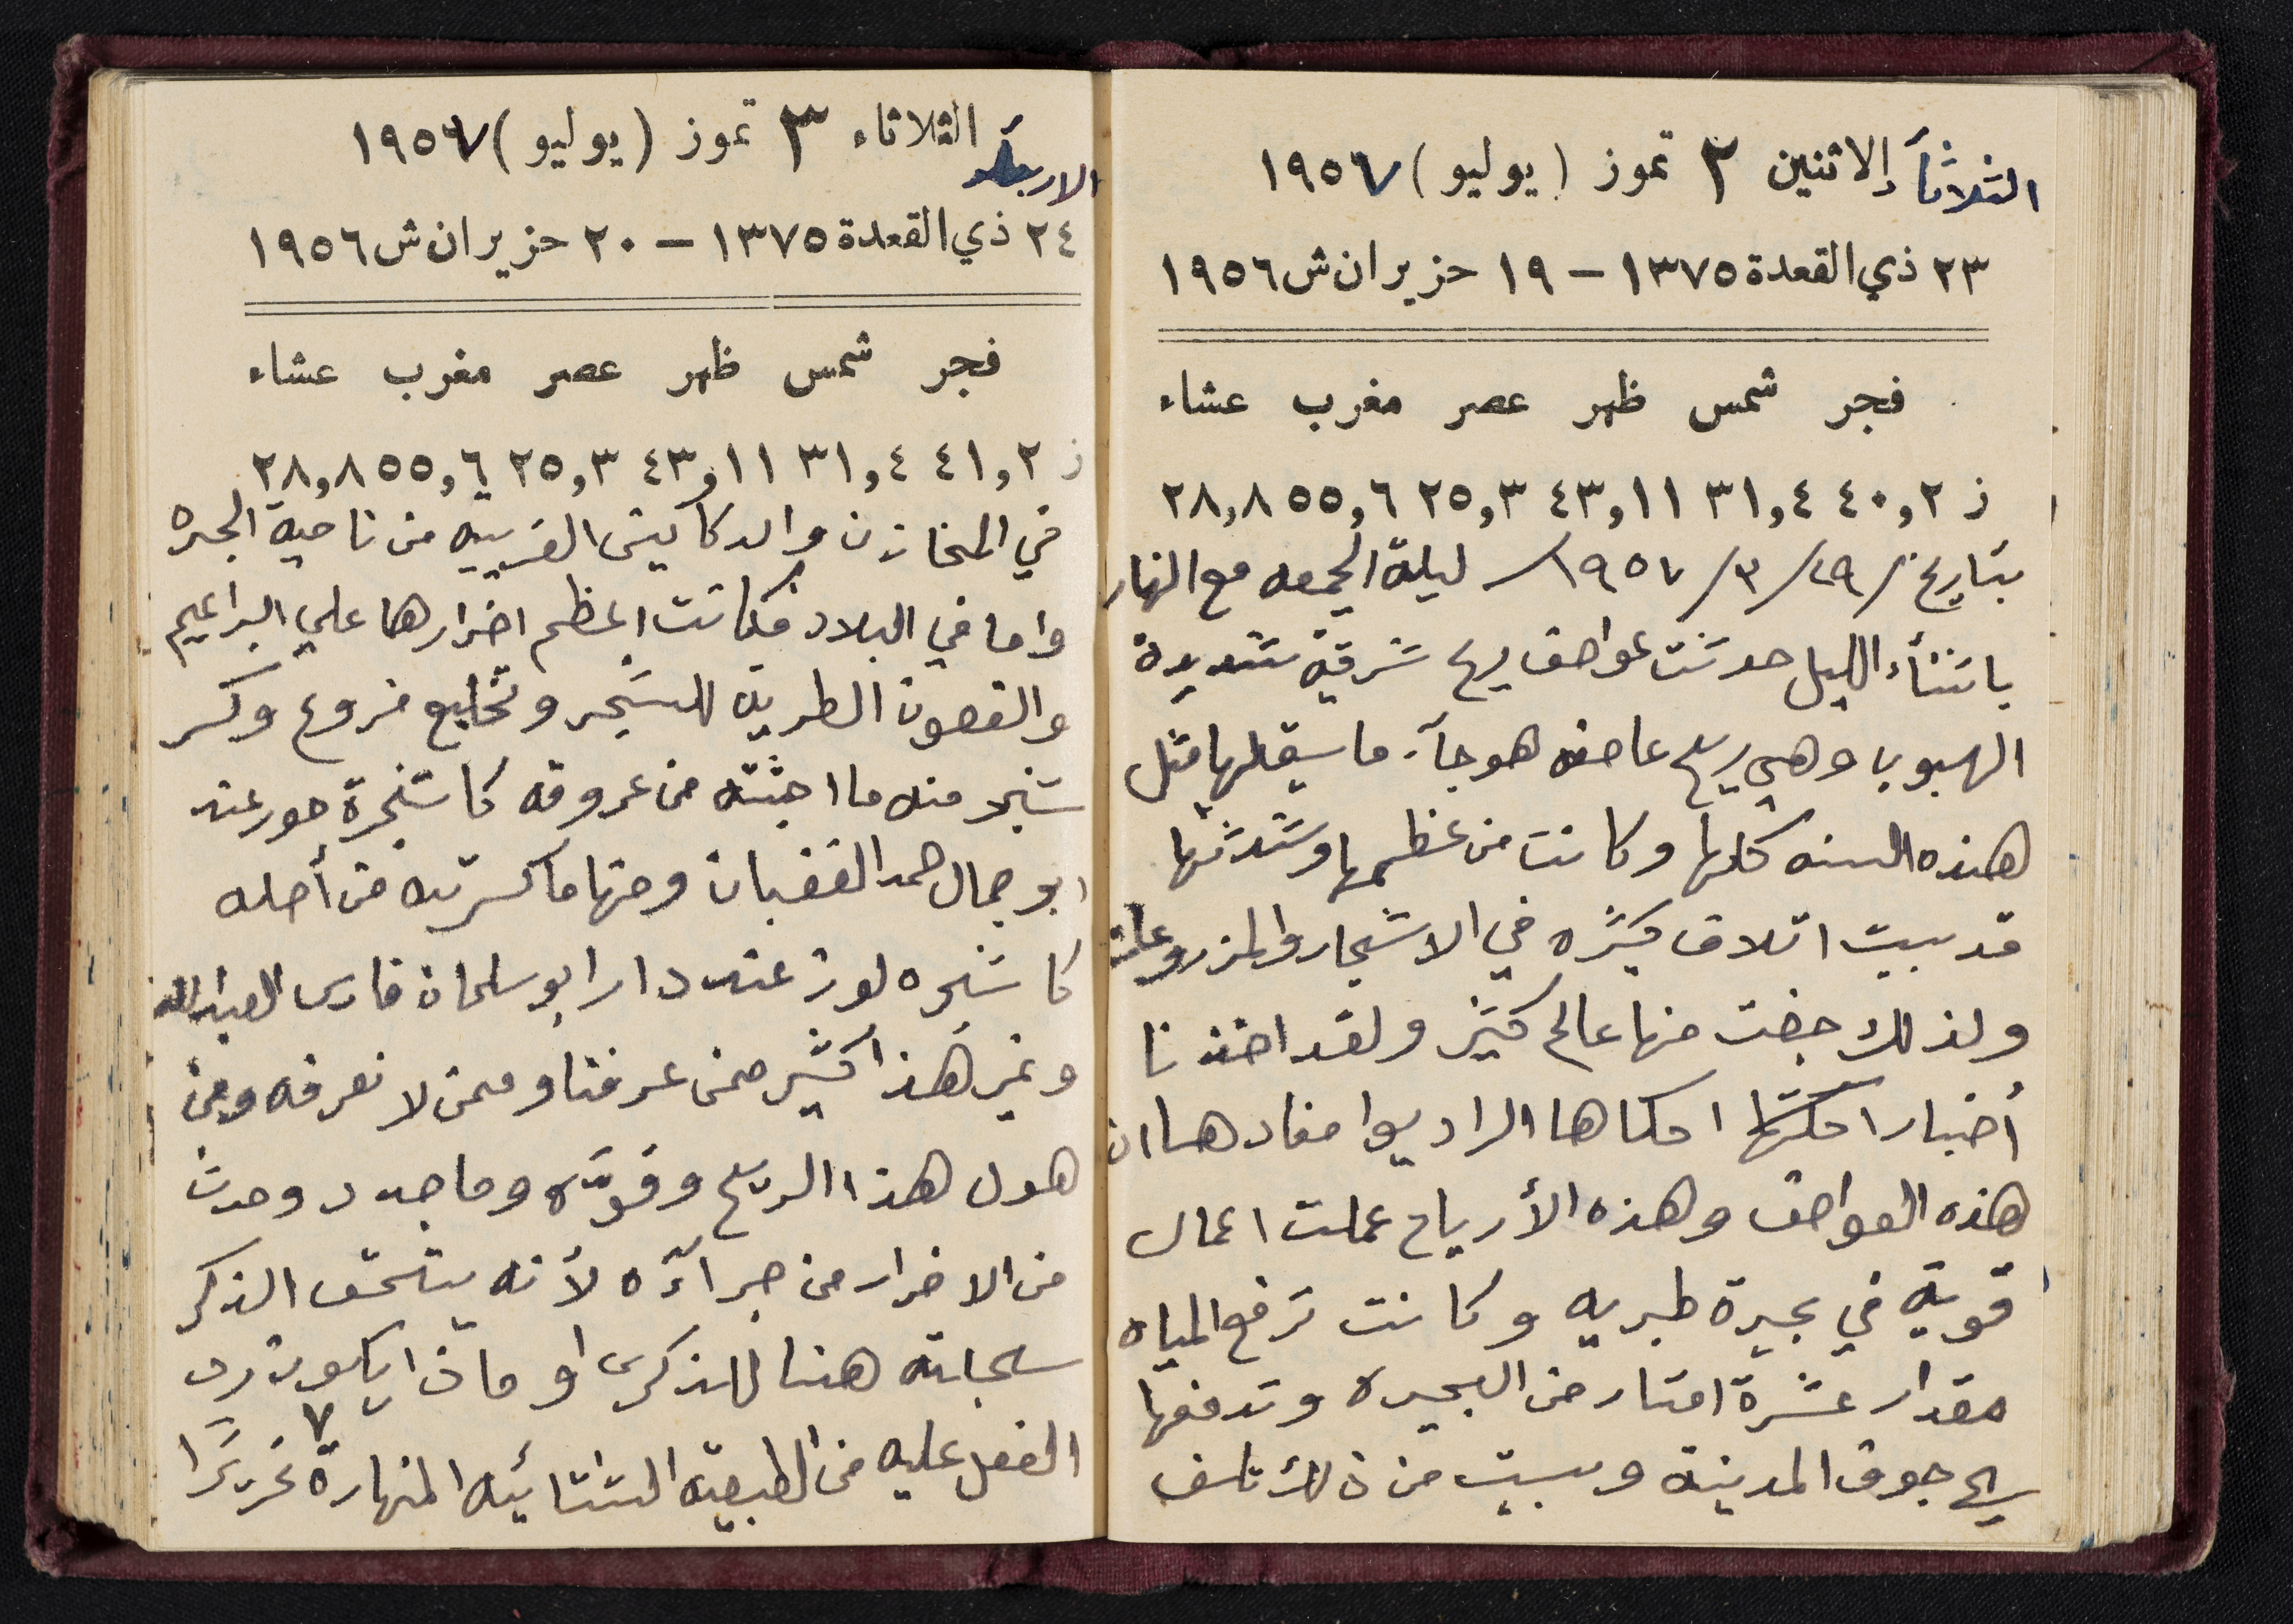 الثلاثأ الاثنين ٢ تموز (يوليو) ١٩٥٧
٢٣ ذي القعدة ١٣٧٥ – ١٩ حزيران ش ١٩٥٦
فجر شمس ظهر عصر مغرب عشاء
ز ٤٠,٢ ٣١,٤ ٤٣,١١ ٢٥,٣ ٥٥,٦ ٢٨,٨
بتاريخ / ٢٩/ ٣/ ١٩٥٧/ ليلة الجمعه مع النهار
باثنأء الليل حدثت عواصف ريح شرقية شديدة
الهبوب وهي ريح عاصفه هوجآء ما سبقلها مثل
هذه السنه كلها وكانت من عظمها وشدتها
قد سببت اتلاف كثره في الاشجار والمزروعات
ولذلك جفت منها عالم كثير ولقد اخذنا
أخبارا حكتها احكاها الراديوا مفادها ان
هذه العواصف وهذه الأرياح عملت اعمال
قوية في بحيرة طبريه وكانت ترفع المياه
مقدار عشرة امتار من البحيره وتدفعها
الي جوف المدينة وسببت من ذلك تلف
الاربعاء الثلاثاء ٣ تموز (يوليو) ١٩٥٧
٢٤ ذي القعدة ١٣٧٥ – ٢٠ حزيران ش ١٩٥٦
فجر شمس ظهر عصر مغرب عشاء
ز ٤١,٢ ٣١,٤ ٤٣,١١ ٢٥,٣ ٥٥,٦ ٢٨,٨
في المخازن والدكاكين القريبه من ناحية البحره
واما في البلاد فكانت اعظم اضرارها علي البراعيم
والغصون الطريه للشجر وتخليع فروع وكسر
شجر منه ما اجثته من عروقه كاشجرة حور عند
ابو جمال حمد الغضبان ومنها ما كسرته من أصله
كاشجره لوز عند دار ابو سلمان فارس العبدالله
وغير هذا كثير ممن عرفنا وممن لا نعرفه ومن
هول هذا الريح وقوته وما جدد وحدث
من الاضرار من جرآئه لأنه يستحق الذكر
سجلته هنا للذكرى او ماذا يكون رد
الفعل عليه من الطبيعة الشتائيه المنهارة تحريرًا
٧